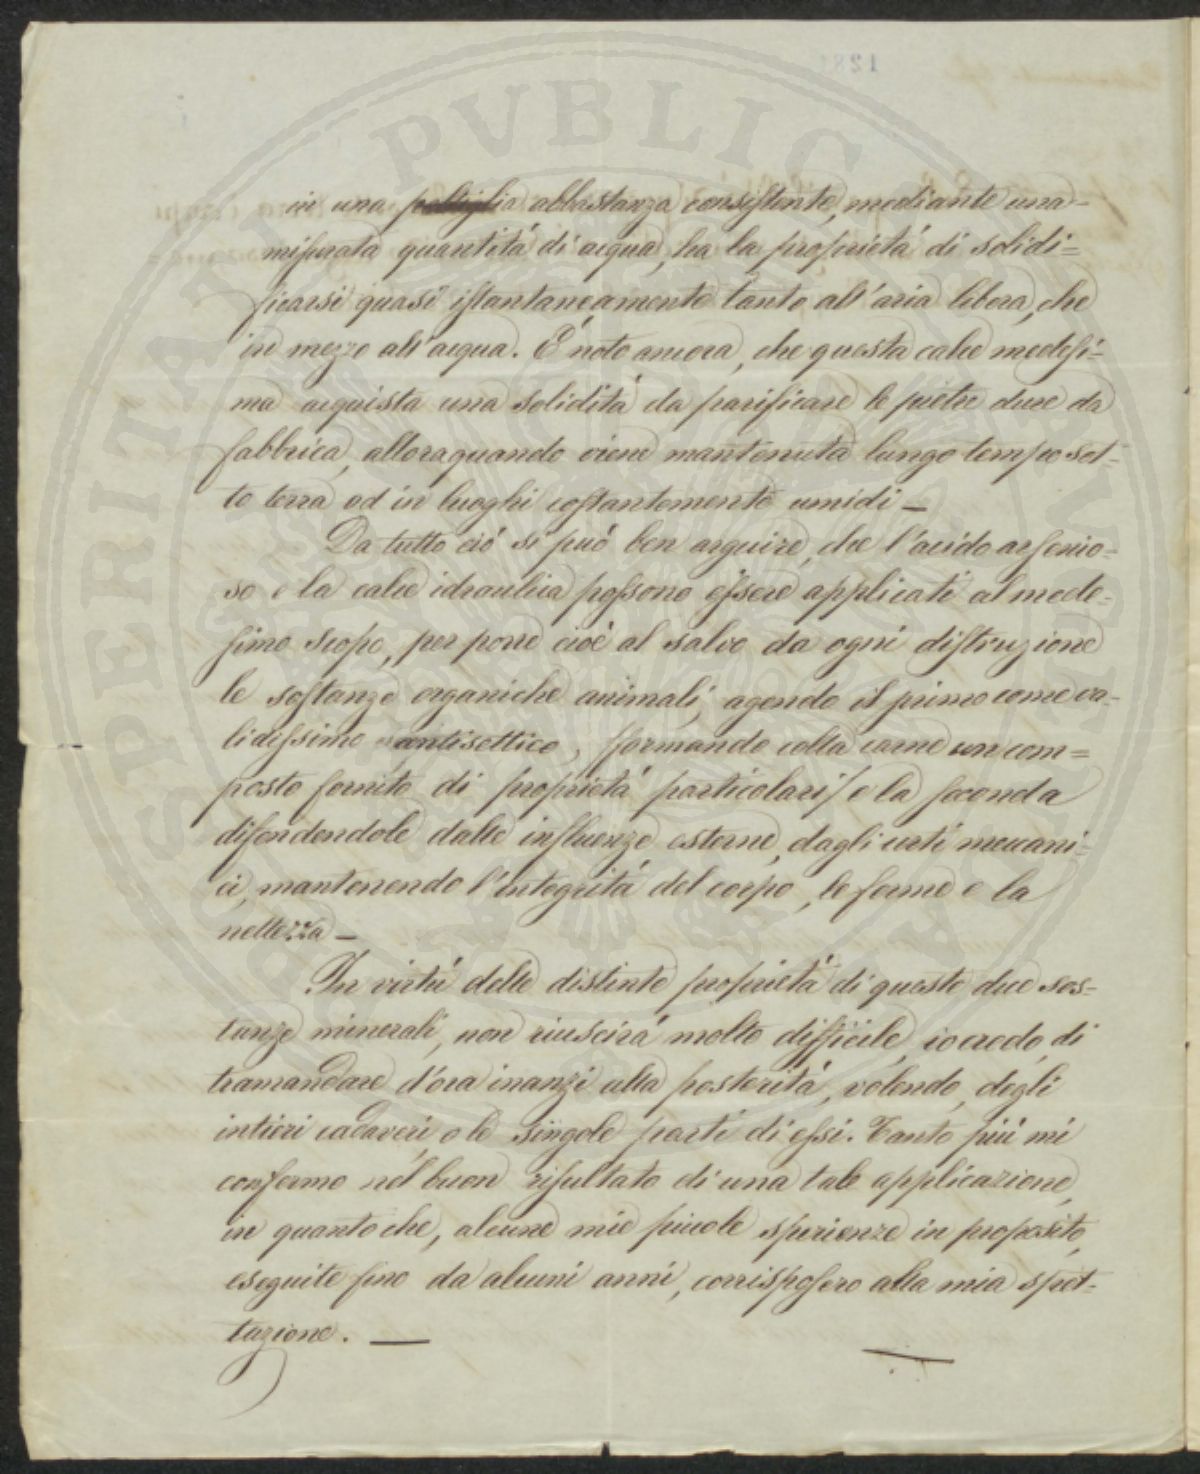 in una poltiglia abbastanza consistente, mediante una
misurata quantitá di acqua, ha la proprietá di solidi=
ficarsi quasi istantaneamente tanto all'aria libera, che
in mezzo all'acqua. É noto ancora, che questa calce medesi=
ma acquista una soliditá da parificare le pietre dure da
fabbrica, alloraquando viene mantenuta lungo tempo sot=
to terra od in luoghi costantemente umidi —
Da tutto ció si puó ben arguire, che l'acido arsenio=
so e la calce idraulica possono essere applicati al mede=
simo scopo, per porre cioé al salvo da ogni distruzione
le sostanze organiche animali, agendo il primo come va=
lidissimo antisettico, formando colla carne un com=
posto fornito di proprietá particolari, e la seconda
difendendole dalle influenze esterne, dagli urti meccani=
ci, mantenendo l'integritá del corpo, le forme e la
nettezza —
In virtú delle distinte proprietá di queste due sos=
tanze minerali, non riuscirá molto difficile, io credo, di
tramandare d'ora inanzi alla posteritá, volendo, degli
intieri cadaveri, o le singole parti di essi. Tanto piú mi
confermo nel buon risultato di una tale applicazione,
in quanto che, alcune mie piccole sperienze in proposito,
eseguite fino da alcuni anni, corrisposero alla mia spet=
tazione. —